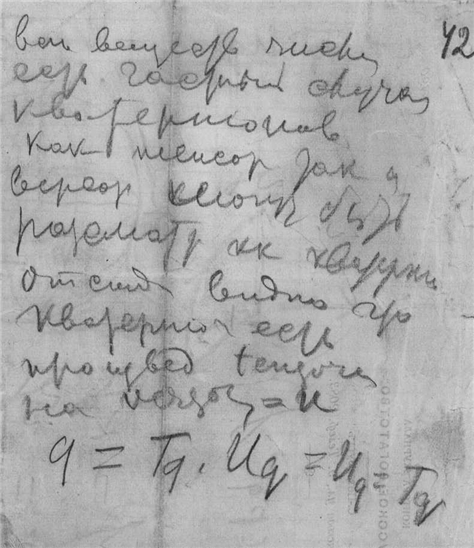 42
вещ вещеров числ
есть частный случай
кватернионов
как тенсор так и
версор могут быть
рассматр как кватерн
отсюда видно что
кватернион есть
произвед tензора
на версор = u
q = Tq . Uq = Uq . Tq